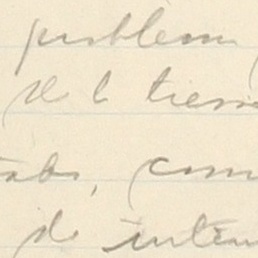 problem
de la tierra
tado, com
de inten